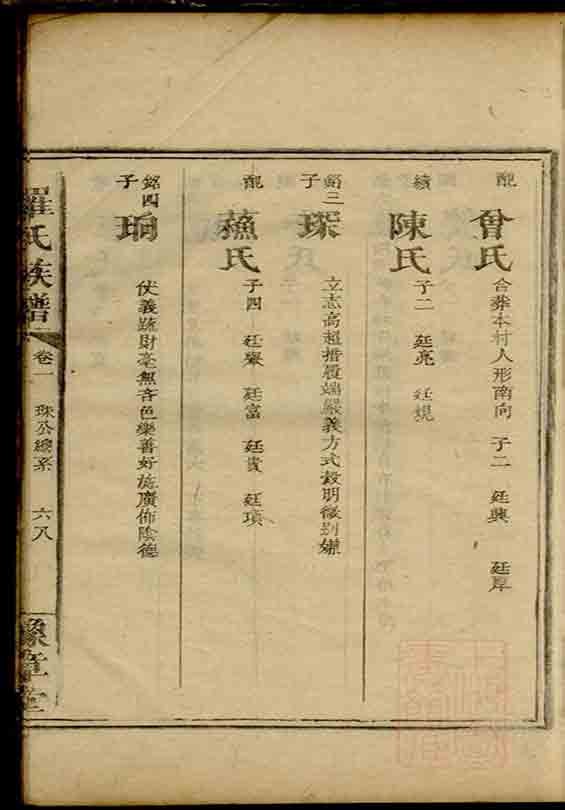 配 曾氏 合葬本村人形南向 子二 廷興 廷厚
續 陳氏 子二 廷亮 廷規
銘三子 琛 立志高超措履端嚴義方式穀明微別嫌
配 蘓氏 子四 廷 廷富 廷貴 廷瑣
銘四子 珦 仗義疏財毫無吝色樂善好施廣佈陰德
羅氏族譜 卷一 珠公總系 六八 豫章堂